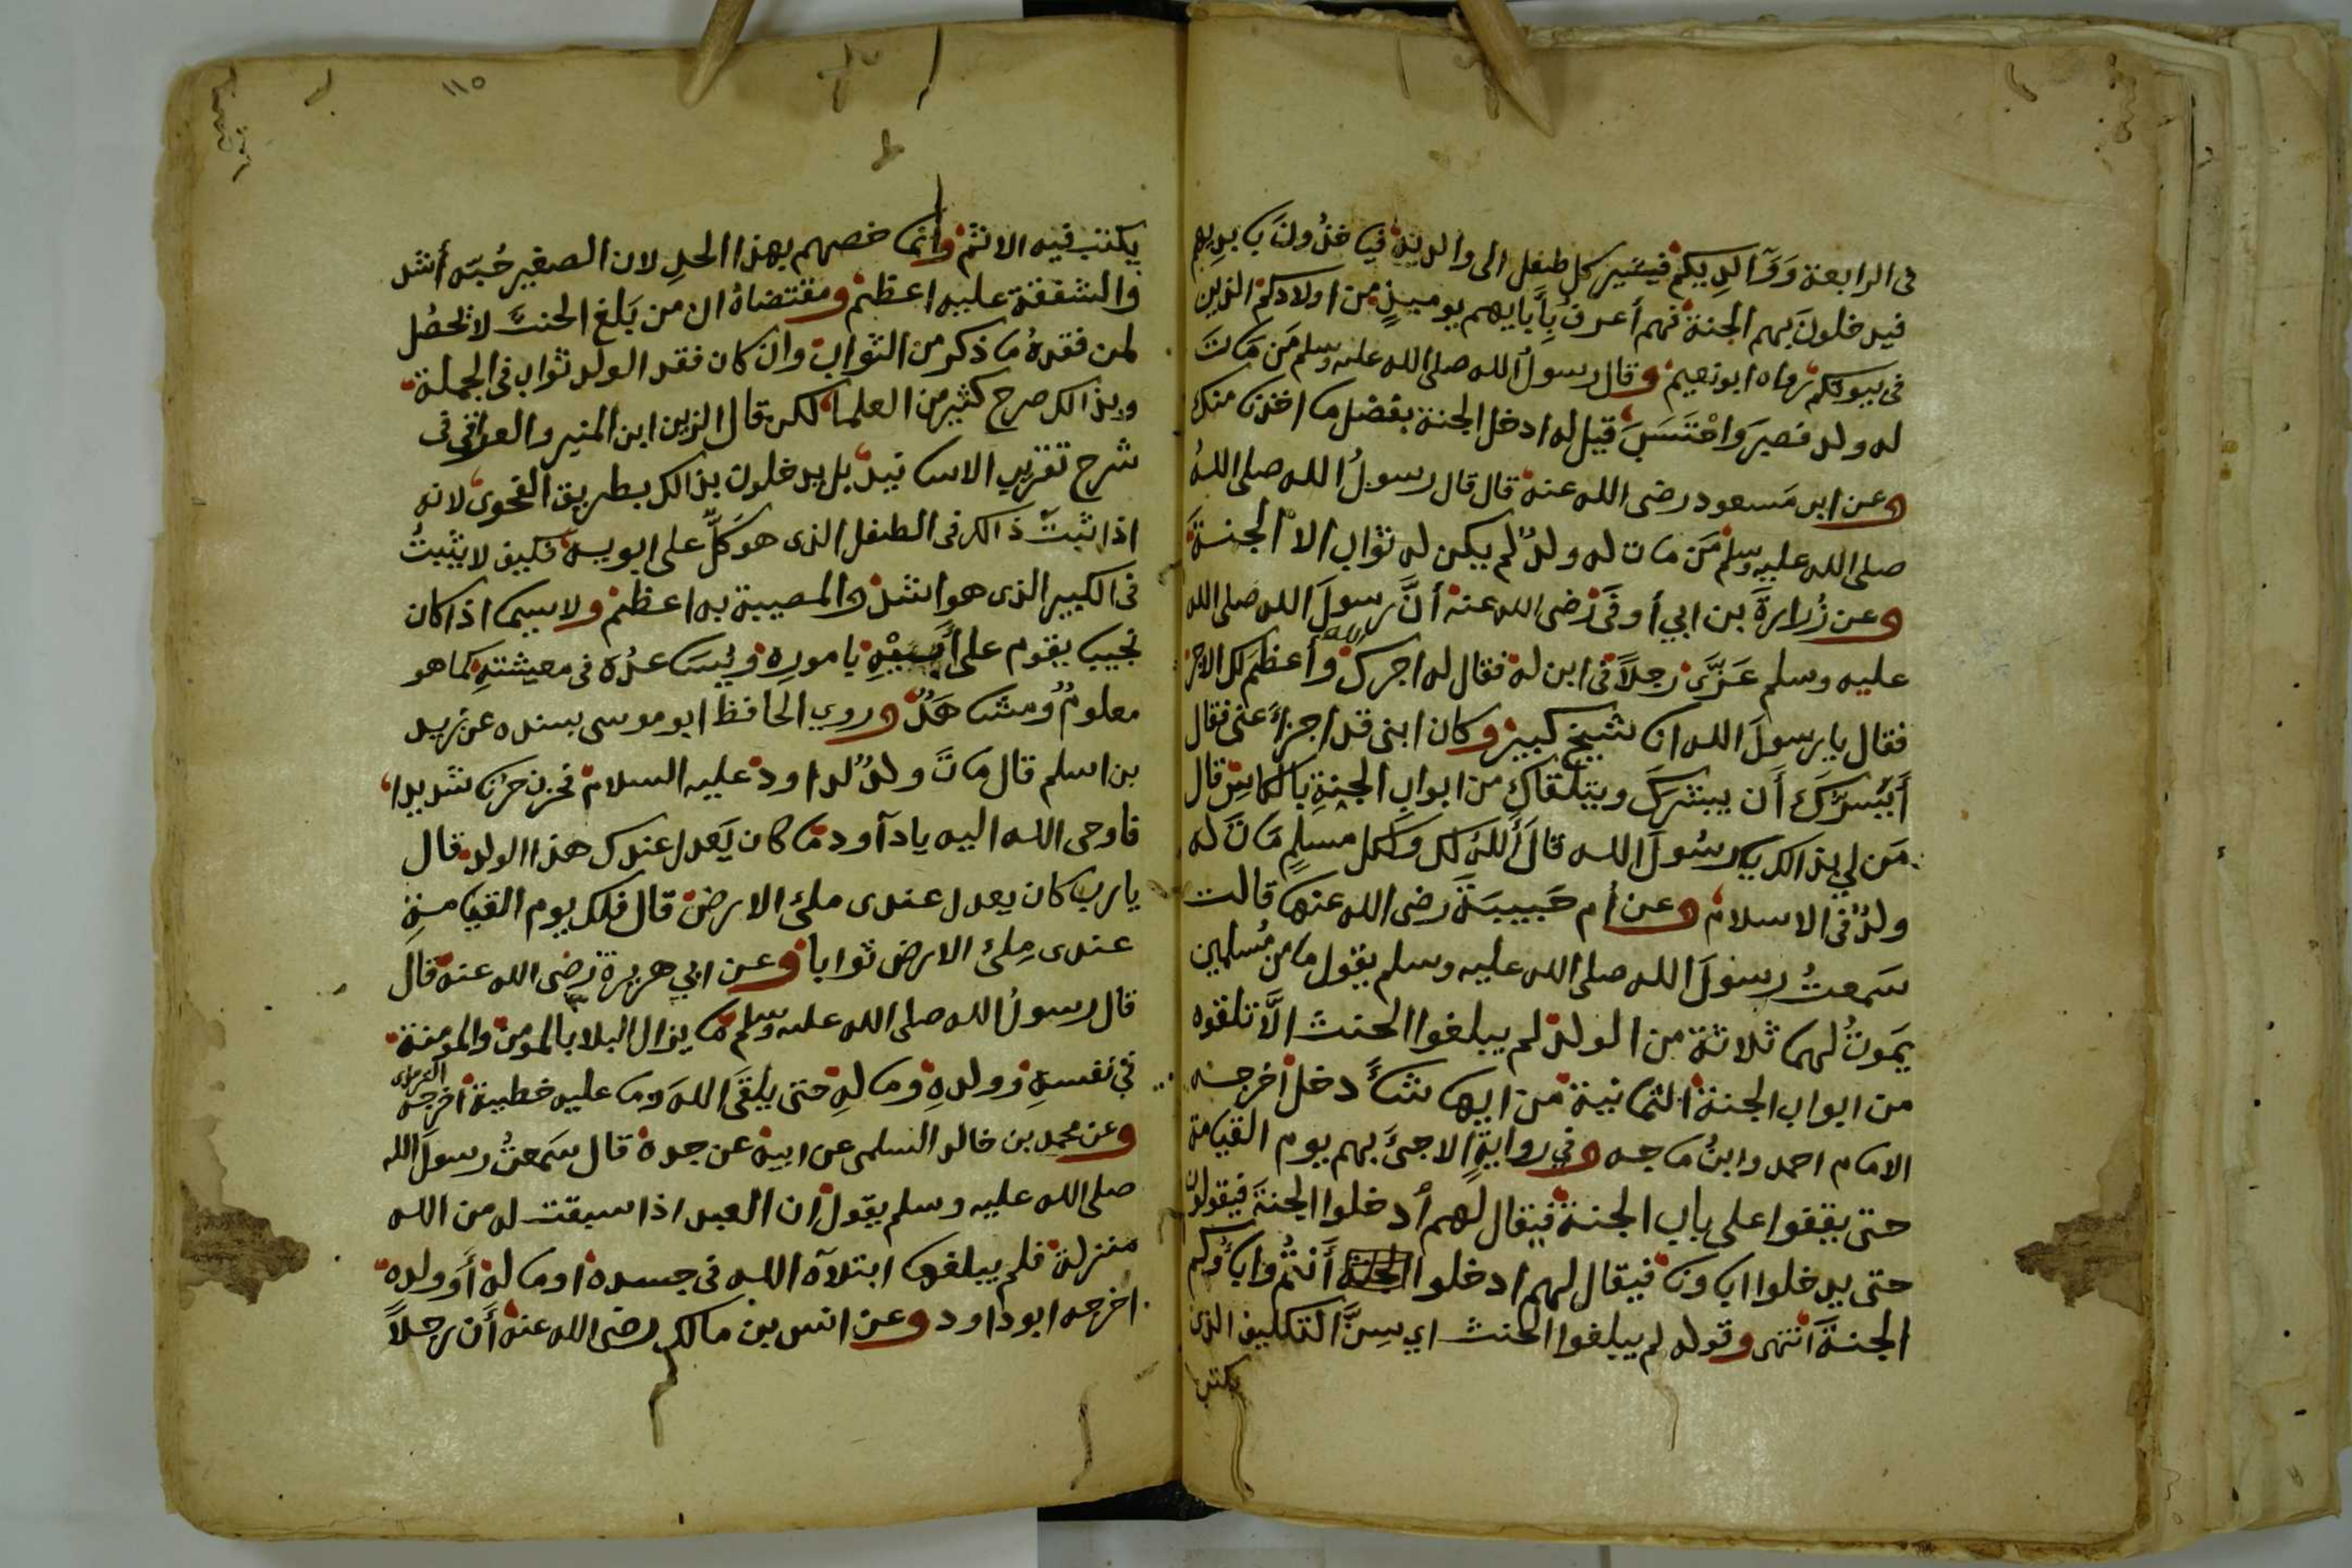 في الرابعة ووالديكم فيسير كل طفل الى والديه فياخذون بايديهم
فيدخلون بهم الجنة فهم أعرف بأبايهم يوميذ من اولادكم الذين
في بيوتكم رواه ابونعيم وقال رسول الله صلى الله عليه وسلم من مات
له ولد فصبر واحتسب قيل له ادخل الجنة بفضل ما اخذنا منك
وعن ابن مسعود رضى الله عنه قال قال رسول الله صلى الله
صلى الله عليه وسلم من مات له ولد لم يكن له ثواب الا الجنة
وعن زرارة بن ابي أوفى رضى الله عنه أن رسول الله صلى الله
عليه وسلم عزى رجلا في ابن له فقال له اجرك الله وأعظم لك الاجر
فقال يا رسول الله انا شيخ كبير وكان ابنى قد اجزاء عنى فقال
أيسرك أن يبشرك ويتلقاك من ابواب الجنة بالكاس قال
من لي بذالك يا رسول الله قال ألله لك ولكل مسلم مات له
ولد في الاسلام وعن أم حبيبة رضى الله عنها قالت
سمعت رسول الله صلى الله عليه وسلم يقول ما من مسلمين
يموت لهما ثلاثة من الولد لم يبلغوا الحنث الا تلقوه
من ابواب الجنة الثمانية من ايها شاء دخل أخرجه
الامام احمد وابن ماجه وفي رواية الا جئ بهم يوم القيامة
حتى يقفوا على باب الجنة فيقال لهم أدخلوا الجنة فيقولون
حتى يدخلوا اباونا فيقال لهم ادخلوا الجنة أنتم واباؤكم
الجنة انتهى وقوله لم يبلغوا الحنث اي سن التكليف الذي
يكتب
١١٥
يكتب فيه الاثم وانما خصهم بهذا الحد لان الصغير حبه أشد
والشفقة عليه اعظم ومقتضاه ان من بلغ الحنث لا تحصل
لمن فقده ما ذكر من الثواب وان كان فقد الولد ثواب في الجملة
وبذالك صرح كثير من العلما لكن قال الزين ابن المنير والعراقي في
شرح تقريب الاسانيد بل يدخلون بذالك بطريق الفحوى لانه
اذا ثبت ذالك في الطفل الذي هو كل على ابويه فكيف لا يثبت
في الكبير الذي هو اشد والمصيبة به اعظم ولاسيما اذا كان
نجيب يقوم على أبيه بامورة ويساعده في معيشته كما هو
معلوم ومشاهد وروي الحافظ ابو موسى بسنده عن زيد
بن اسلم قال مات ولد لداود عليه السلام فحزن حزنا شديدا
فاوحى الله اليه يا دآود ما كان يعدل عندك هذا الولد قال
يا رب كان يعدل عندى ملئ الارض قال فلك يوم القيامة
عندى ملئ الارض ثوابا وعن ابي هريرة رضى الله عنه قال
قال رسول الله صلى الله عليه وسلم ما يزال البلا بالمومن والمومنة
في نفسه وولده وماله حتى يلقى الله وما عليه خطيية أخرجه الترمذى
وعن محمد بن خالد السلمى عن ابيه عن جده قال سمعت رسول الله
صلى الله عليه وسلم يقول ان العبد اذا سبقت له من الله
منزلة فلم يبلغها ابتلآه الله في جسده او ماله أو ولده
اخرجه ابو داود وعن انس بن مالك رضى الله عنه أن رجلا